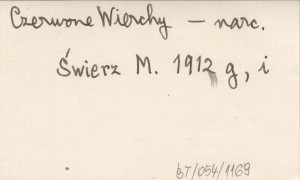 Czerwone Wierchy – narc.
Świerz M. 1912 g, i
BT/054/1169